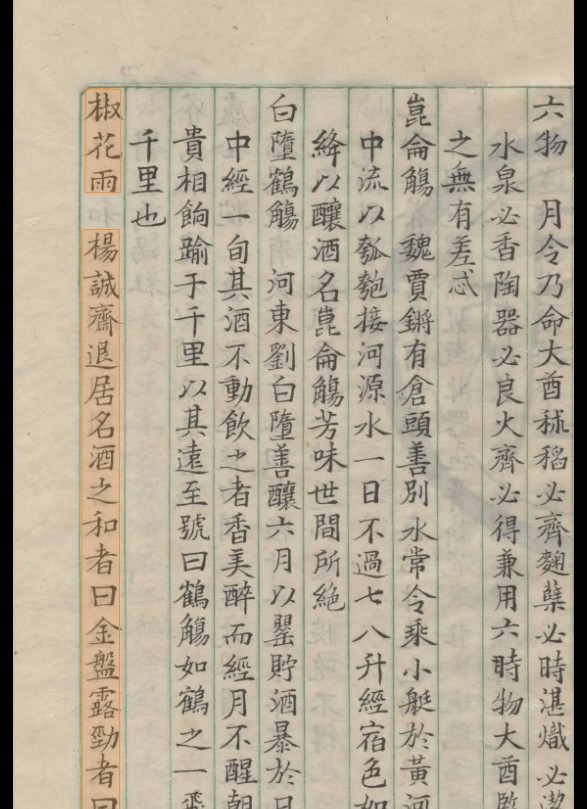 六物 月令乃命大酋秫稻必齊麴蘖必時湛熾必潔
水泉必香陶器必良火齊必得兼用六時物大酋監
之無有差忒
崑侖觴 魏賈鏘有倉頭善別水常令乘小艇於黃河
中流以瓠匏接河源水一日不過七八升經宿色如
絳以釀酒名崑侖觴芳味世間所絶
白墮鶴觴 河東劉白墮善釀六月以罌貯酒暴於日
中經一旬其酒不動飲之者香美醉而經月不醒朝
貴相餉踰于千里以其遠至號曰鶴觴如鶴之一飛
千里也
椒花雨 楊誠齋退居名酒之和者曰金盤露勁者曰